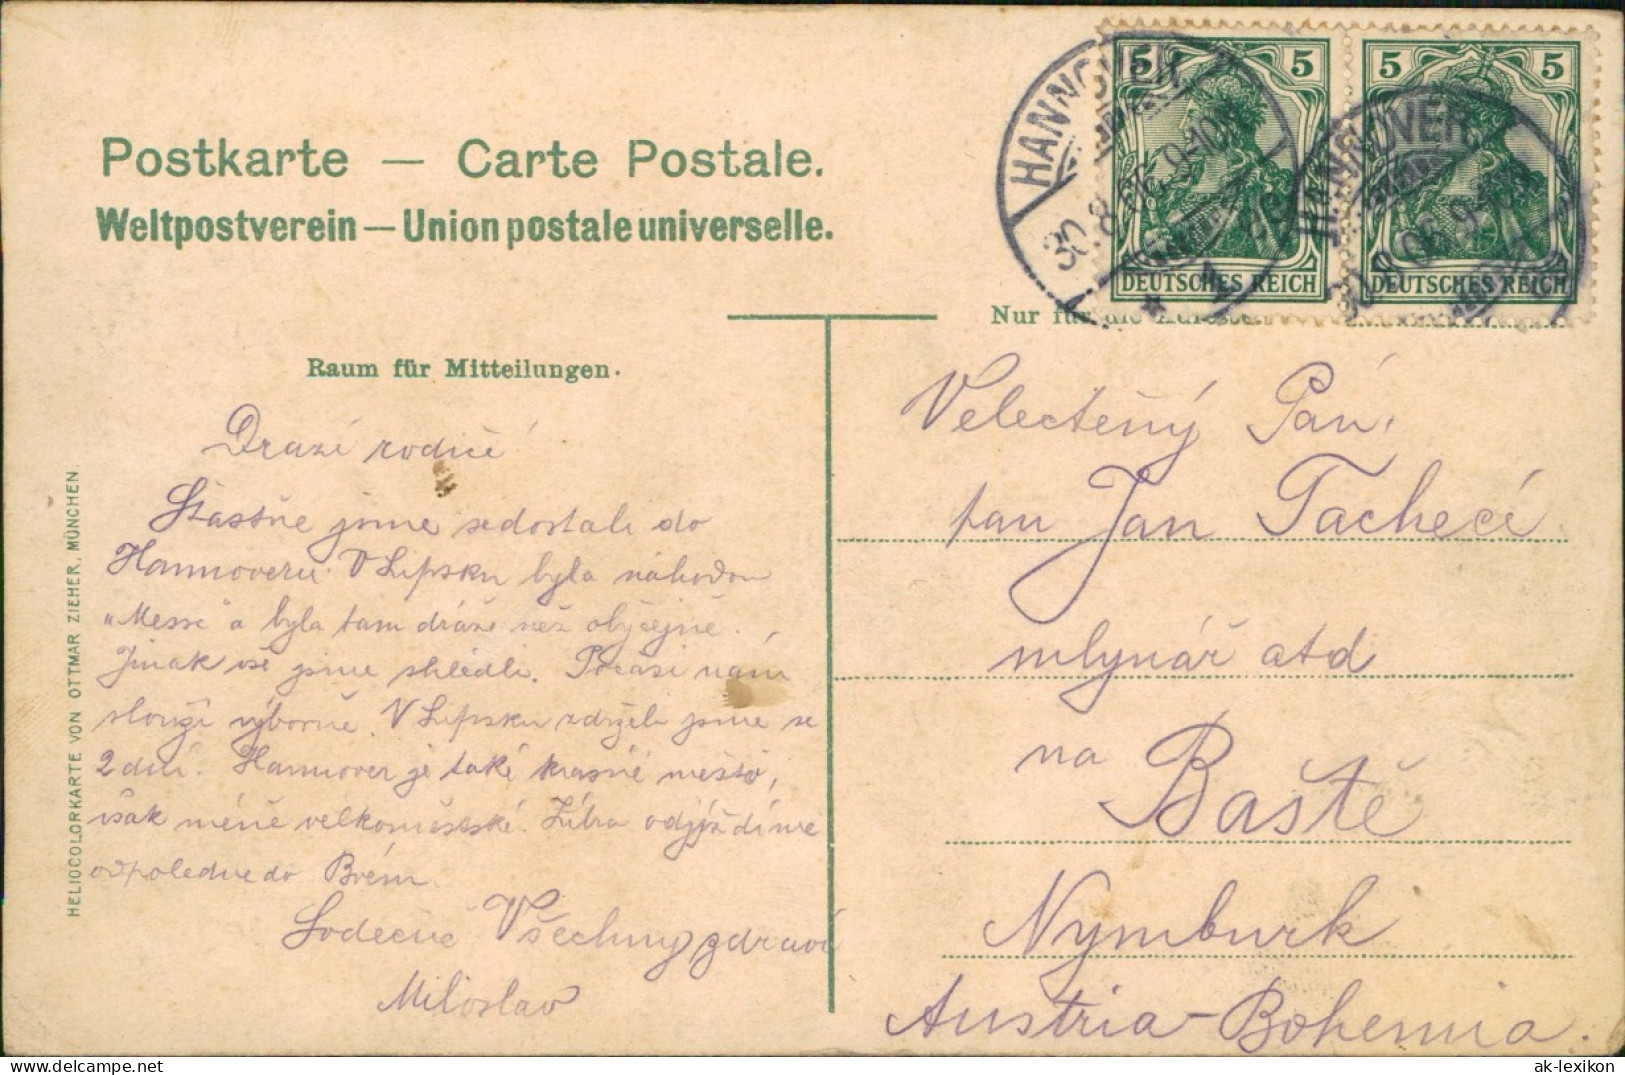 Postkarte — Carte Postale.
Weltpostverein — Union postale universelle.
5 5
DEUTSCHES REICH
5 5
DEUTSCHES REICH
HANNOVER
30.8.06. 9-10
HANNOVER
Nur für die Adresse
Raum für Mitteilungen.
HELIOCOLORKARTE VON OTTMAR ZIEHER, MÜNCHEN.
Drazí rodiče!
Štastně jsme se dostali do
Hannoveru. V Lipsku byla náhodou
"Messe" a byla tam dráže než obyčejně.
Jinak vše jsme shlédli. Počasí nám
slouží výborně. V Lipsku zdrželi jsme se
2 dni. Hannover je také krásné město,
však méně velkoměstské. Zítra odjíždíme
odpoledne do Brém.
Srdečně Všechny zdraví
Miloslav
Velectěný Pán,
pan Jan Tachecí
mlynář atd
na Baště
Nymburk
Austria-Bohemia.
ak-lexikon